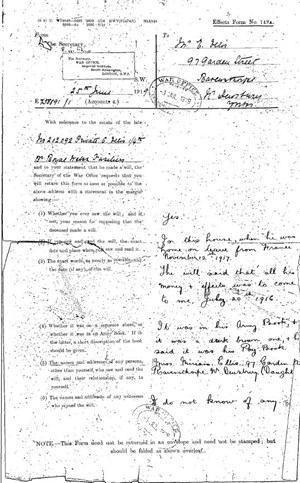 Effects Form No. 117A.
From
The Secretary,
The Secretary,
WAR OFFICE,
Imperial Institute,
South Kensington,
LONDON, S.W.7.
S.W.
25th June 1919
(Accounts 4.)
To
Mrs E. Ellis
97 Garden Street
Ravensthorpe
Nr Dewsbury
Yorks
WAR OFFICE
With reference to the estate of the late
Private E. Ellis
Royal Welsh Fusiliers
and to your statement that he made a will, the
Secretary of the War Office requests that you
will return this form as soon as possible to the
above address with a statement in the margin
showing—
(1) Whether you ever saw the will; and if
not, your reason for supposing that the
deceased made a will.
Yes.
(2) If you did see the will, the exact
date and place when and where you saw it.
In this house, when he was
home on leave from France
November 12th 1917.
(3) The exact words, as nearly as possible, and
the date (if any), of the will.
The will said that all his
money & effects was to come
to me. July 28th 1916.
(4) Whether it was on a separate sheet, or
whether it was in an Army Book. If in
the latter, a short description of the book
should be given.
It was in his Army Book, &
it was a dark brown one, & he
said it was his Pay Book
(5) The names and addresses of any persons,
other than yourself, who saw and read the
will, and their relationship, if any, to
yourself.
Miriam Ellis, 97 Garden St
Ravensthorpe Nr Dewsbury (Daught
(6) The names and addresses of any witnesses
who signed the will.
I do not know of any
WAR OFFICE
NOTE.—This Form need not be returned in an envelope and need not be stamped; but
should be folded as shown overleaf.